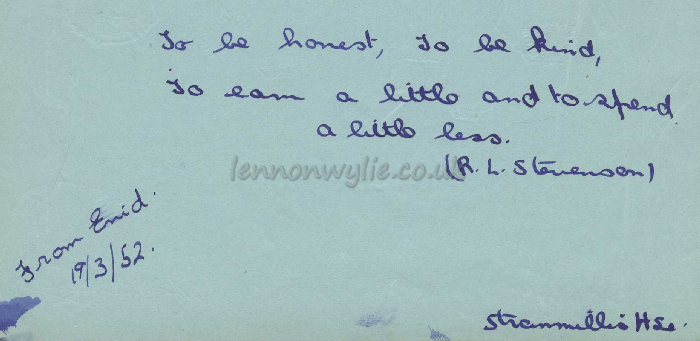 To be honest, To be kind,
To earn a little and to spend
a little less.
lennonwylie.co.uk
(R. L. Stevenson)
From Enid.
19/3/52.
Stranmillis Hse.